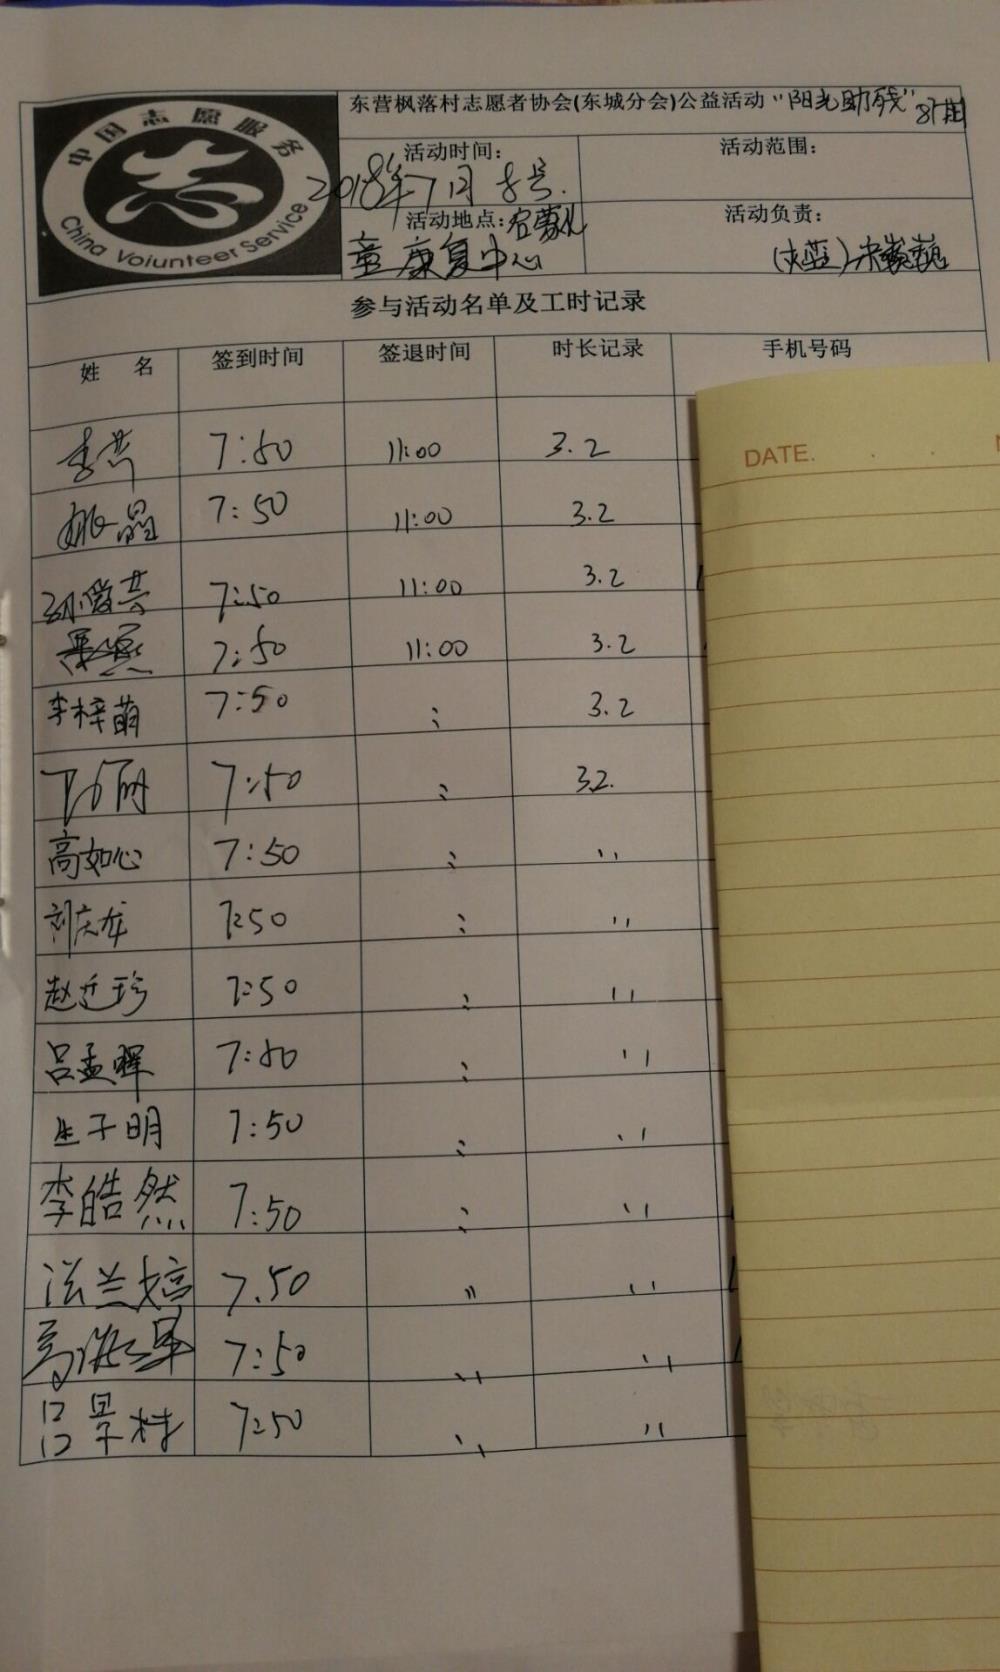 中国志愿服务
China Voiunteer Service
东营枫落村志愿者协会(东城分会)公益活动"阳光助残"81期
活动时间： 活动范围：
2018年7月8号.
活动地点：启蒙儿 活动负责：
童康复中心
参与活动名单及工时记录
姓 名 签到时间 签退时间 时长记录 手机号码
DATE.
7:50 11:00 3.2
姚晶 7:50 11:00 3.2
孙爱芸 7:50 11:00 3.2
7:50 11:00 3.2
李梓萌 7:50 ; 3.2
7:50 ; 3.2.
高如心 7:50 ; ''
刘庆龙 7:50 ; ''
7:50 ; ''
吕孟晖 7:50 ; ''
生子明 7:50 ; ''
李皓然 7:50 ; ''
法兰婷 7.50 '' ''
7:50 '' ''
吕景村 7:50 '' ''